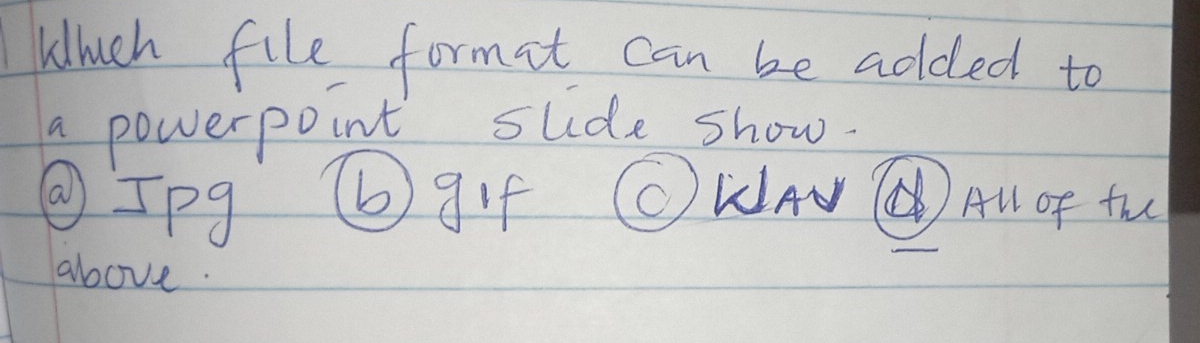 Which file format can be added to
a powerpoint slide show.
(a) Jpg (b) gif (c) WAV (d) All of the
above.